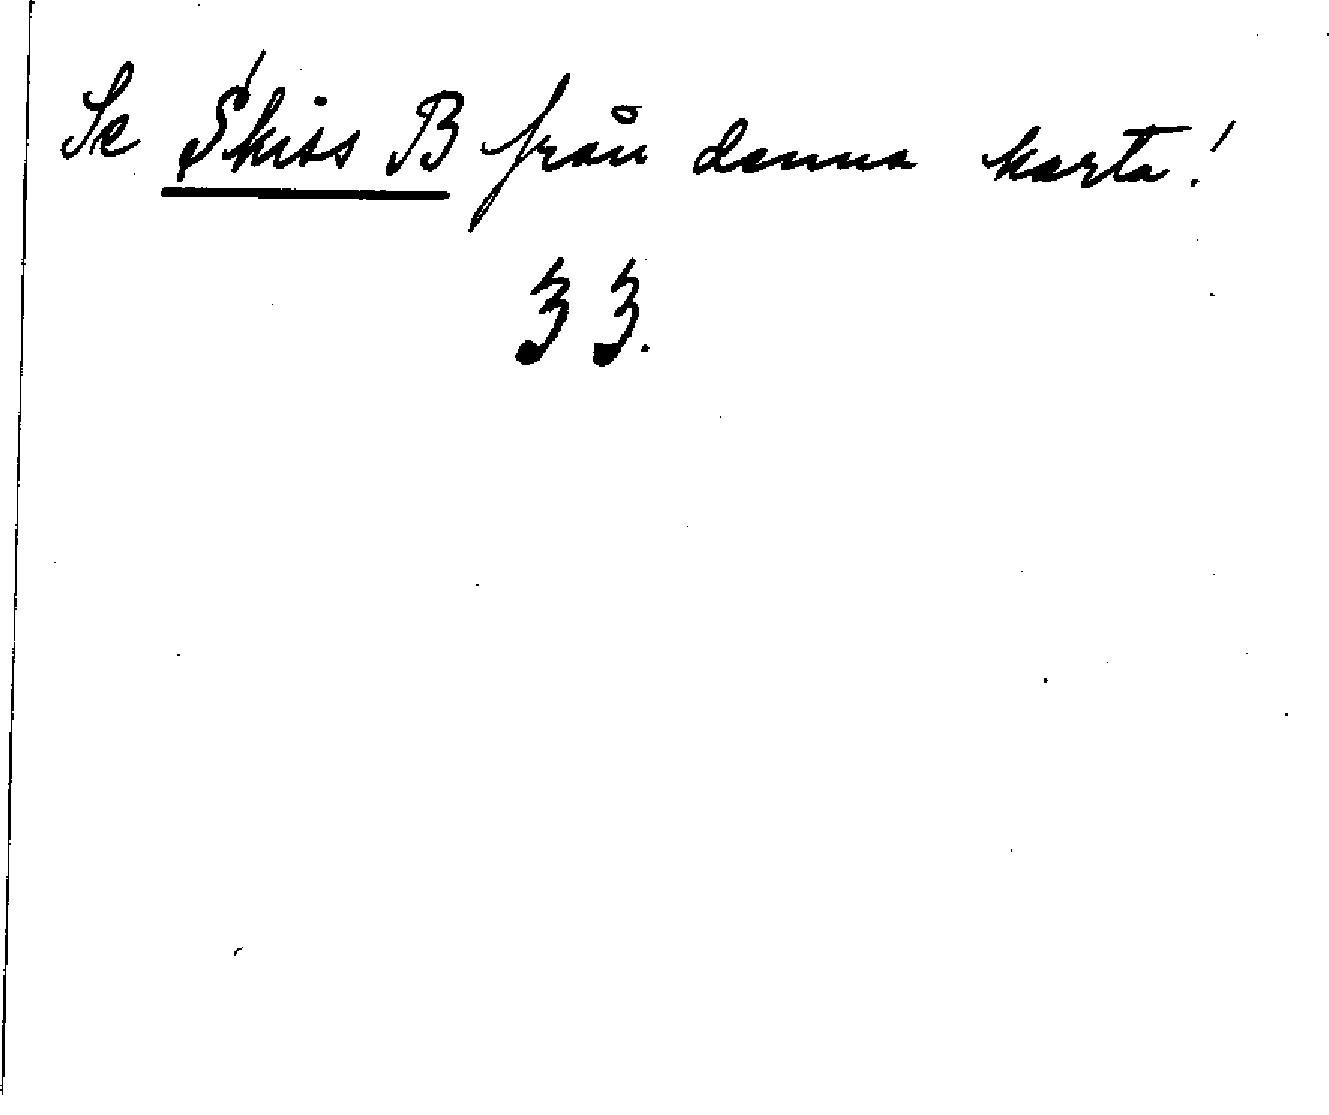 Se Skiss B från denna karta!
33.